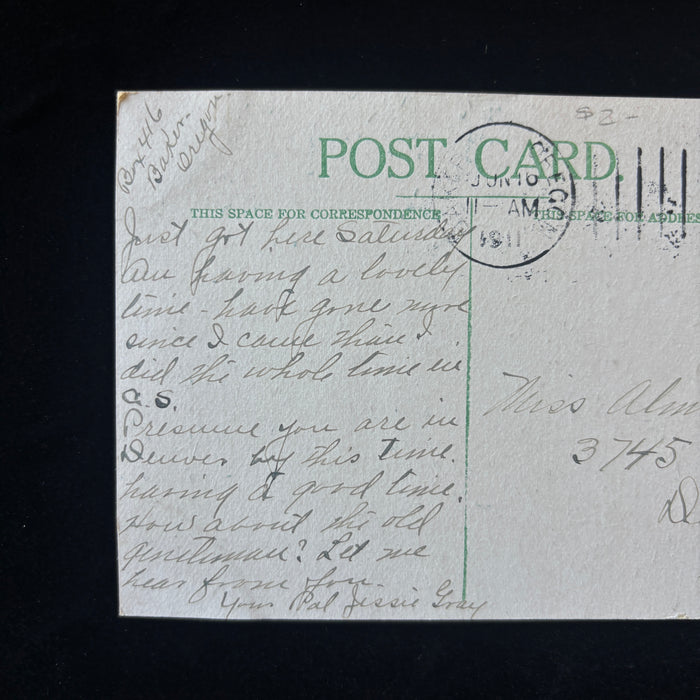 Box 416
Baker.
Oregon.
$2-
POST CARD.
OREGON
JUN 16
11-AM
1911
THIS SPACE FOR CORRESPONDENCE
THIS SPACE FOR ADDRES
Just got here Saturday
Am having a lovely
time - have gone more
since I came than I
did the whole time in
C.S.
Presume you are in
Denver by this time.
having a good time.
How about the old
gentleman? Let me
hear from you.
Your Pal Jessie Gray
Miss Alm
3745
D